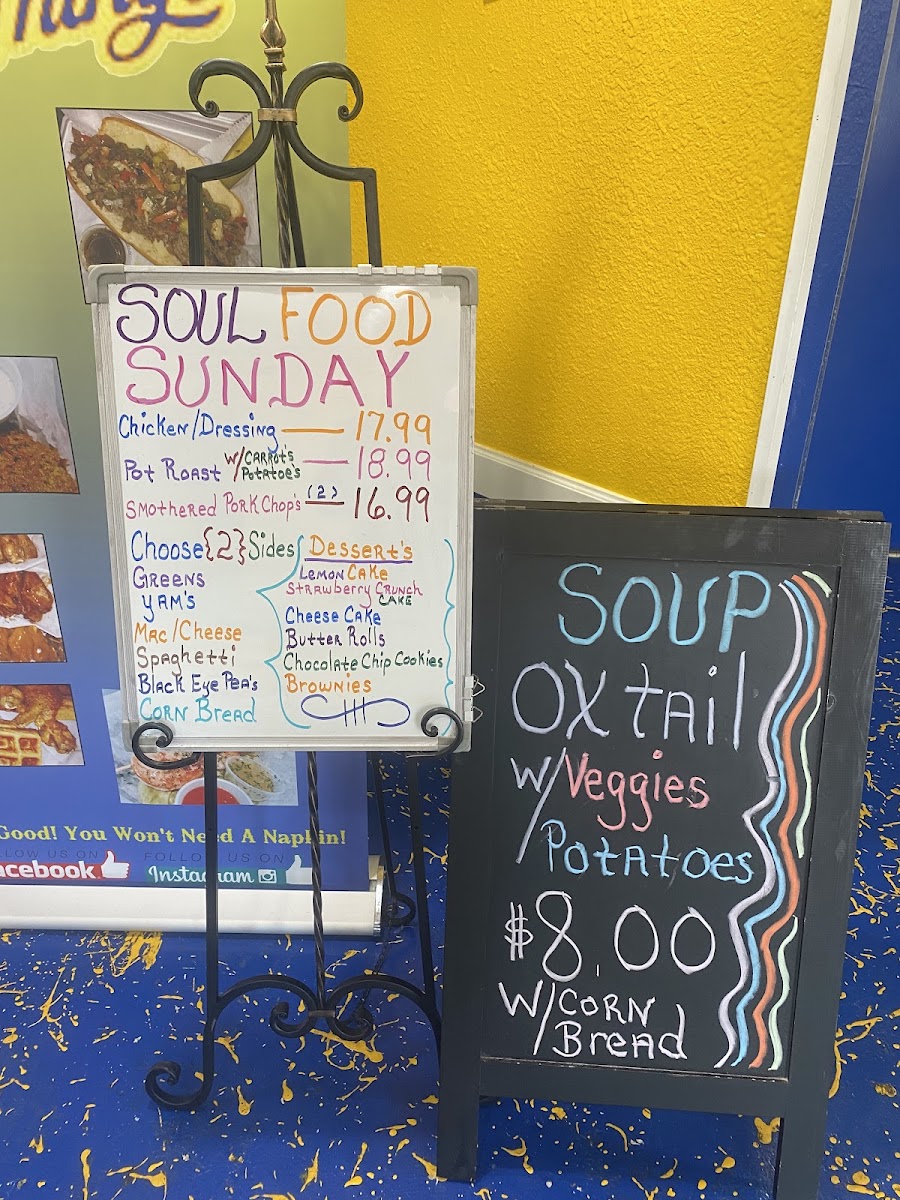 SOUL FOOD
SUNDAY
Chicken/Dressing — 17.99
Pot Roast w/Carrot's Potatoe's — 18.99
Smothered Pork Chop's (2) — 16.99
Choose {2} Sides
Greens
Yam's
Mac/Cheese
Spaghetti
Black Eye Pea's
Corn Bread
Dessert's
Lemon Cake
Strawberry Crunch
Cake
Cheese Cake
Butter Rolls
Chocolate Chip Cookies
Brownies
SOUP
OXtail
w/Veggies
Potatoes
$8.00
w/Corn
Bread
Good! You Won't Need A Napkin!
FOLLOW US ON
Instagram